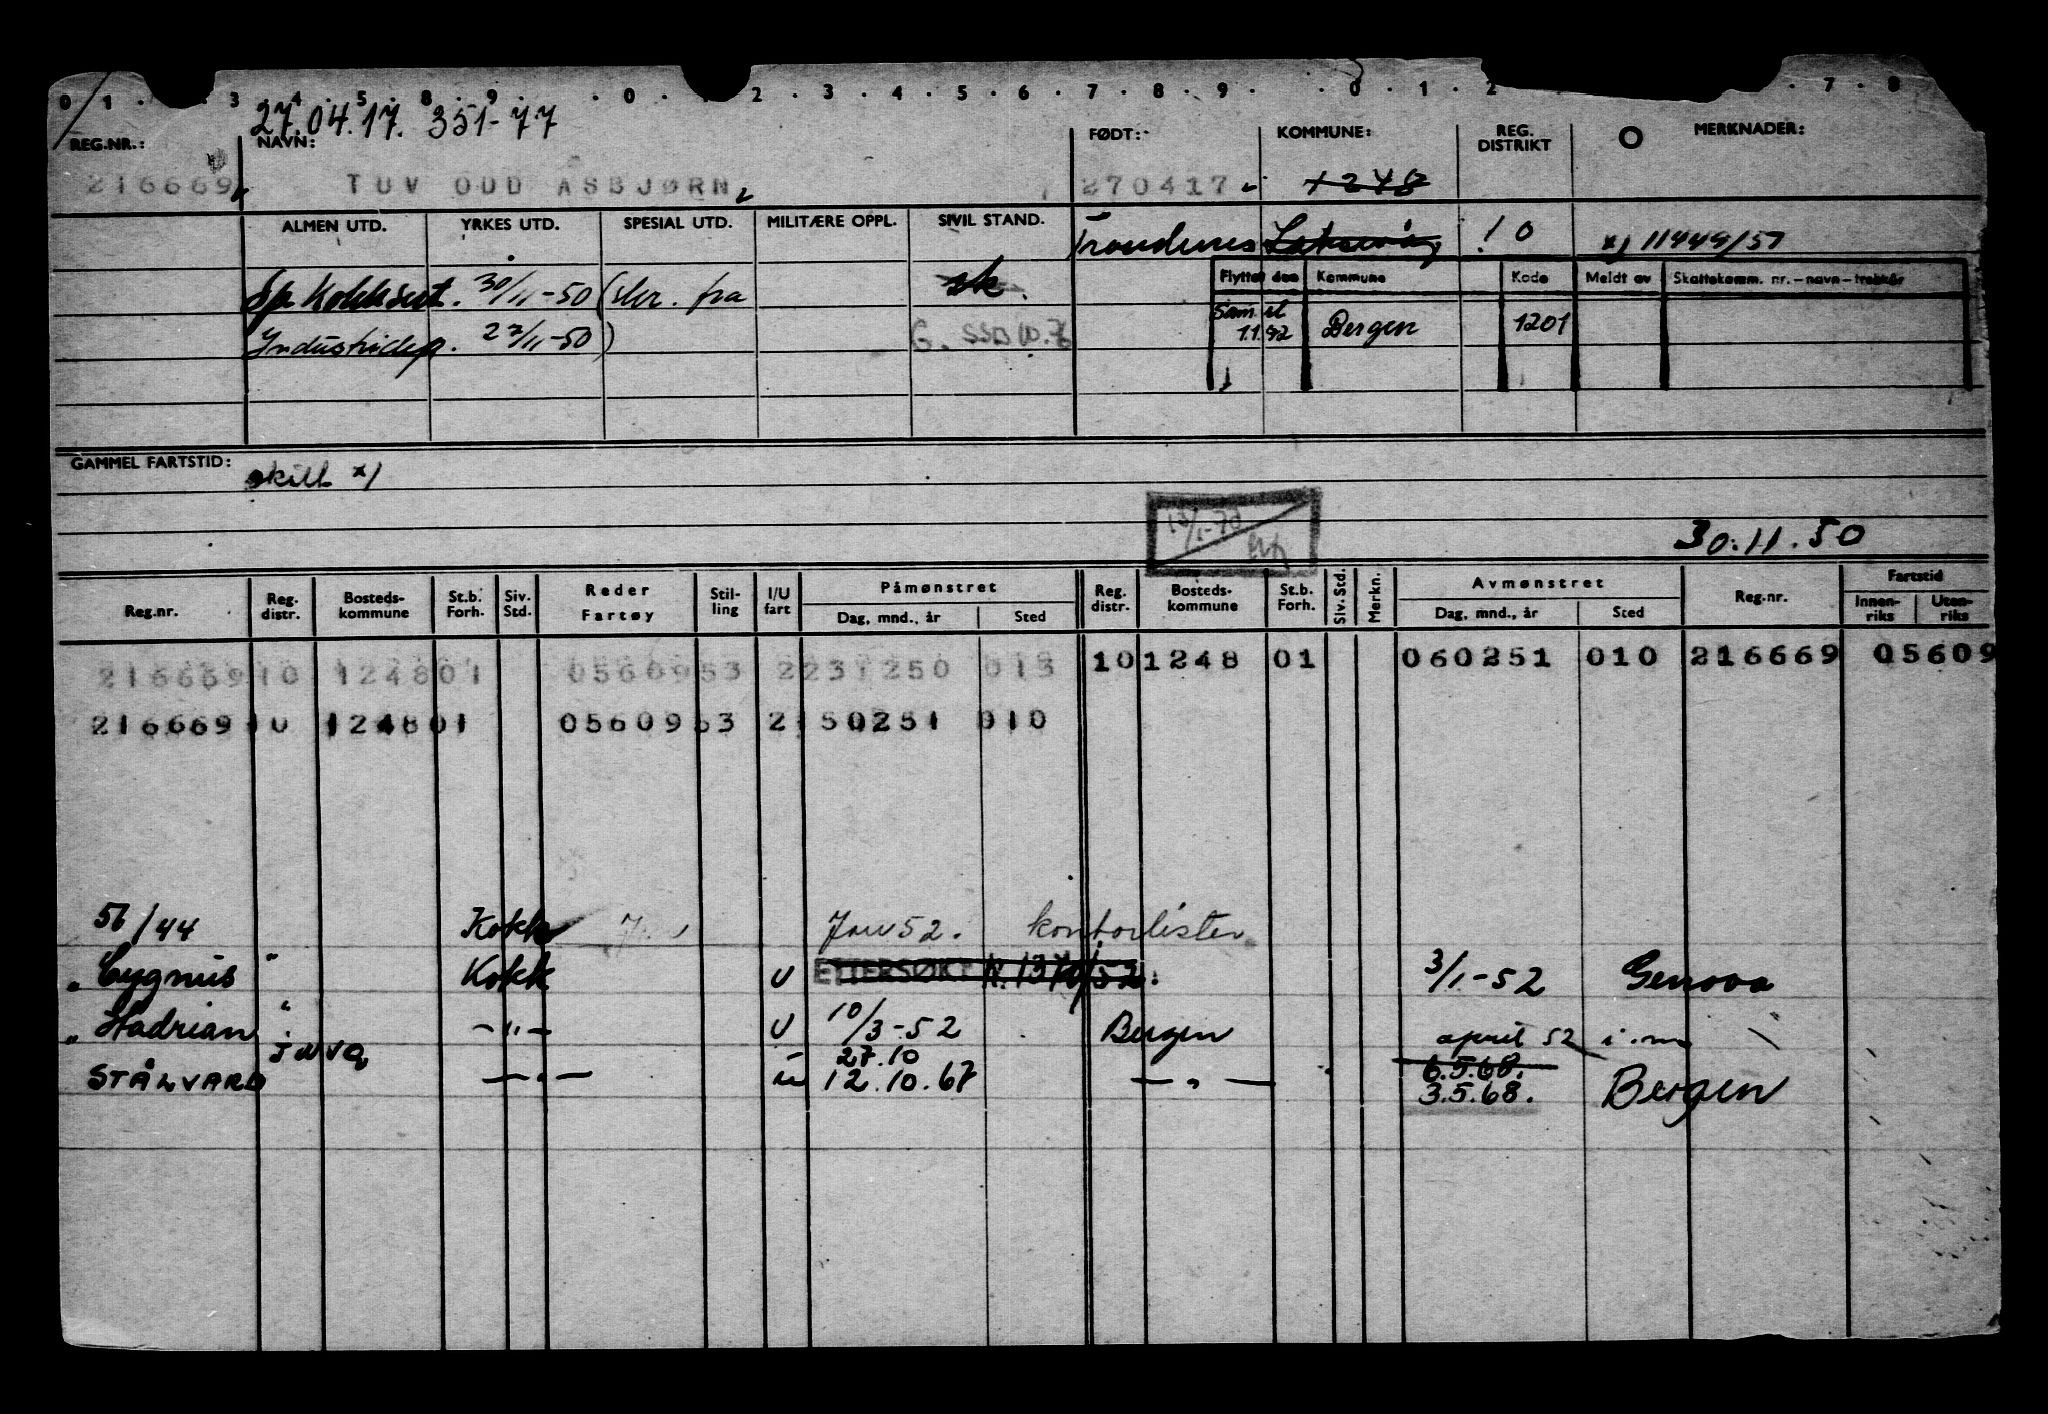 0 1 . . 3 4 . 5 . 8 . 9 . . 0 . 1 . 2 . 3 . 4 . 5 . 6 . 7 . 8 . 9 . . 0 . 1 . 2 . 7 . 8
27.04.17. 351-77
REG.NR.: NAVN: FØDT: KOMMUNE: REG. DISTRIKT O MERKNADER:
216669 TUV ODD ASBJØRN 270417 1248
ALMEN UTD. YRKES UTD. SPESIAL UTD. MILITÆRE OPPL. SIVIL STAND. Trondenes Laksevåg 10 x) 11449/57
Flyttet den Kommune Kode Meldt av Skattekomm. nr. - navn - trekkår
Sp Kokksert. 30/11-50 (skr. fra
Industridep. 22/11-50)
G.
1.1.92 Bergen 1201
GAMMEL FARTSTID: skill x)
13/1-70
30.11.50
Reg.nr. Reg. distr. Bosteds-kommune St.b. Forh. Siv. Std. Reder Fartøy Stil-ling I/U fart Påmønstret Dag, mnd., år Sted Reg. distr. Bosteds-kommune St.b. Forh. Siv. Std. Merkn. Avmønstret Dag, mnd., år Sted Reg.nr. Fartstid Innen-riks Uten-riks
216669 10 1248 01 05609 53 2 231250 013 10 1248 01 060251 010 216669 05609
216669 10 1248 01 05609 53 2 150251 010
56/44 Kokk Jan 52. kontorlister
" Cygnus " Kokk U ETTERSØKT R. 1370/52. 3/1-52 Genova
" Hadrian " -"- U 10/3-52 Bergen april 52 i.m
JWVQ 27.10 6.5.68.
STÅLVARD -"- u 12.10.67 -"- 3.5.68. Bergen